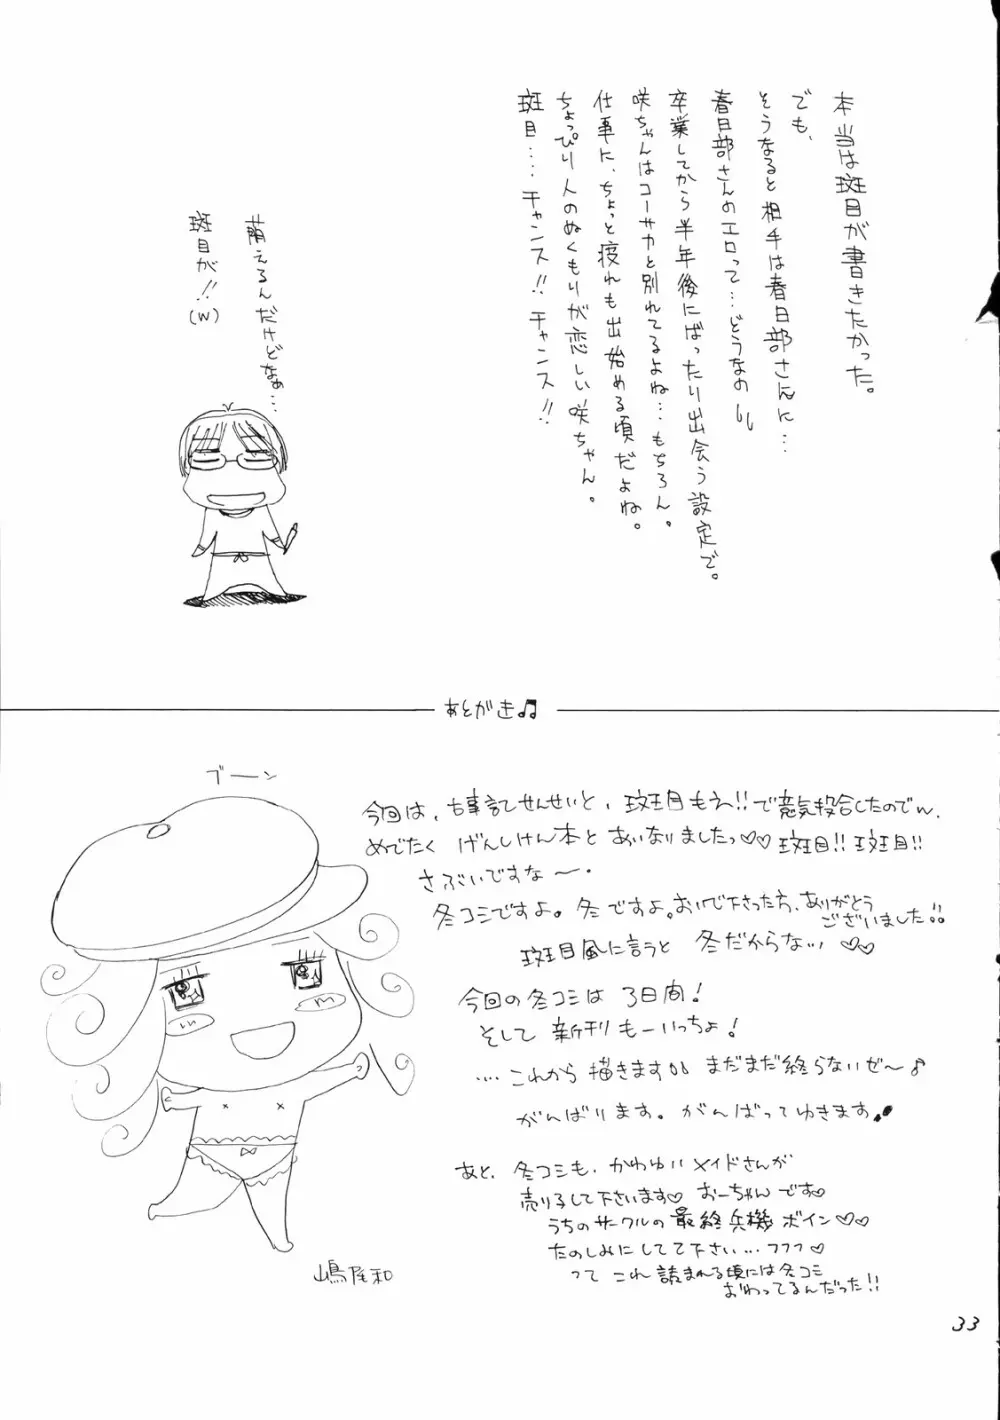 本当は斑目が書きたかった。
でも、
そうなると相手は春日部さんに…
春日部さんのエロって…どうなの
卒業してから半年後にばったり出会う設定で。
咲ちゃんはコーサカと別れてるよね…もちろん。
仕事に、ちょっと疲れも出始める頃だよね。
ちょっぴり人のぬくもりが恋しい咲ちゃん。
斑目…. チャンス!! チャンス!!
萌えるんだけどなぁ…
斑目が!!
(W)
あとがき♫
ブーン
今回は、古事記せんせいと、斑目もえ!!で意気投合したのでw、
めでたく げんしけん本と あいなりましたっ♡♡ 斑目!! 斑目!!
さぶいですな〜・
冬コミですよ。冬ですよ。おいで下さった方、ありがとう
ございました!!
斑目風に言うと 冬だからなぃ、♡♡
今回の冬コミは 3日間!
そして 新刊もーいっちょ!
….これから描きます まだまだ終らないぜ〜♪
がんばります。がんばってゆきます
あと、冬コミも、かわゆいメイドさんが
売り子して下さいます♡ おーちゃんです♡
うちのサークルの最終兵機 ボイン♡♡
たのしみにしてて下さい…フフフ♡
って これ 読まれる頃には冬コミ
おわってるんだった!!
嶋屋和
33